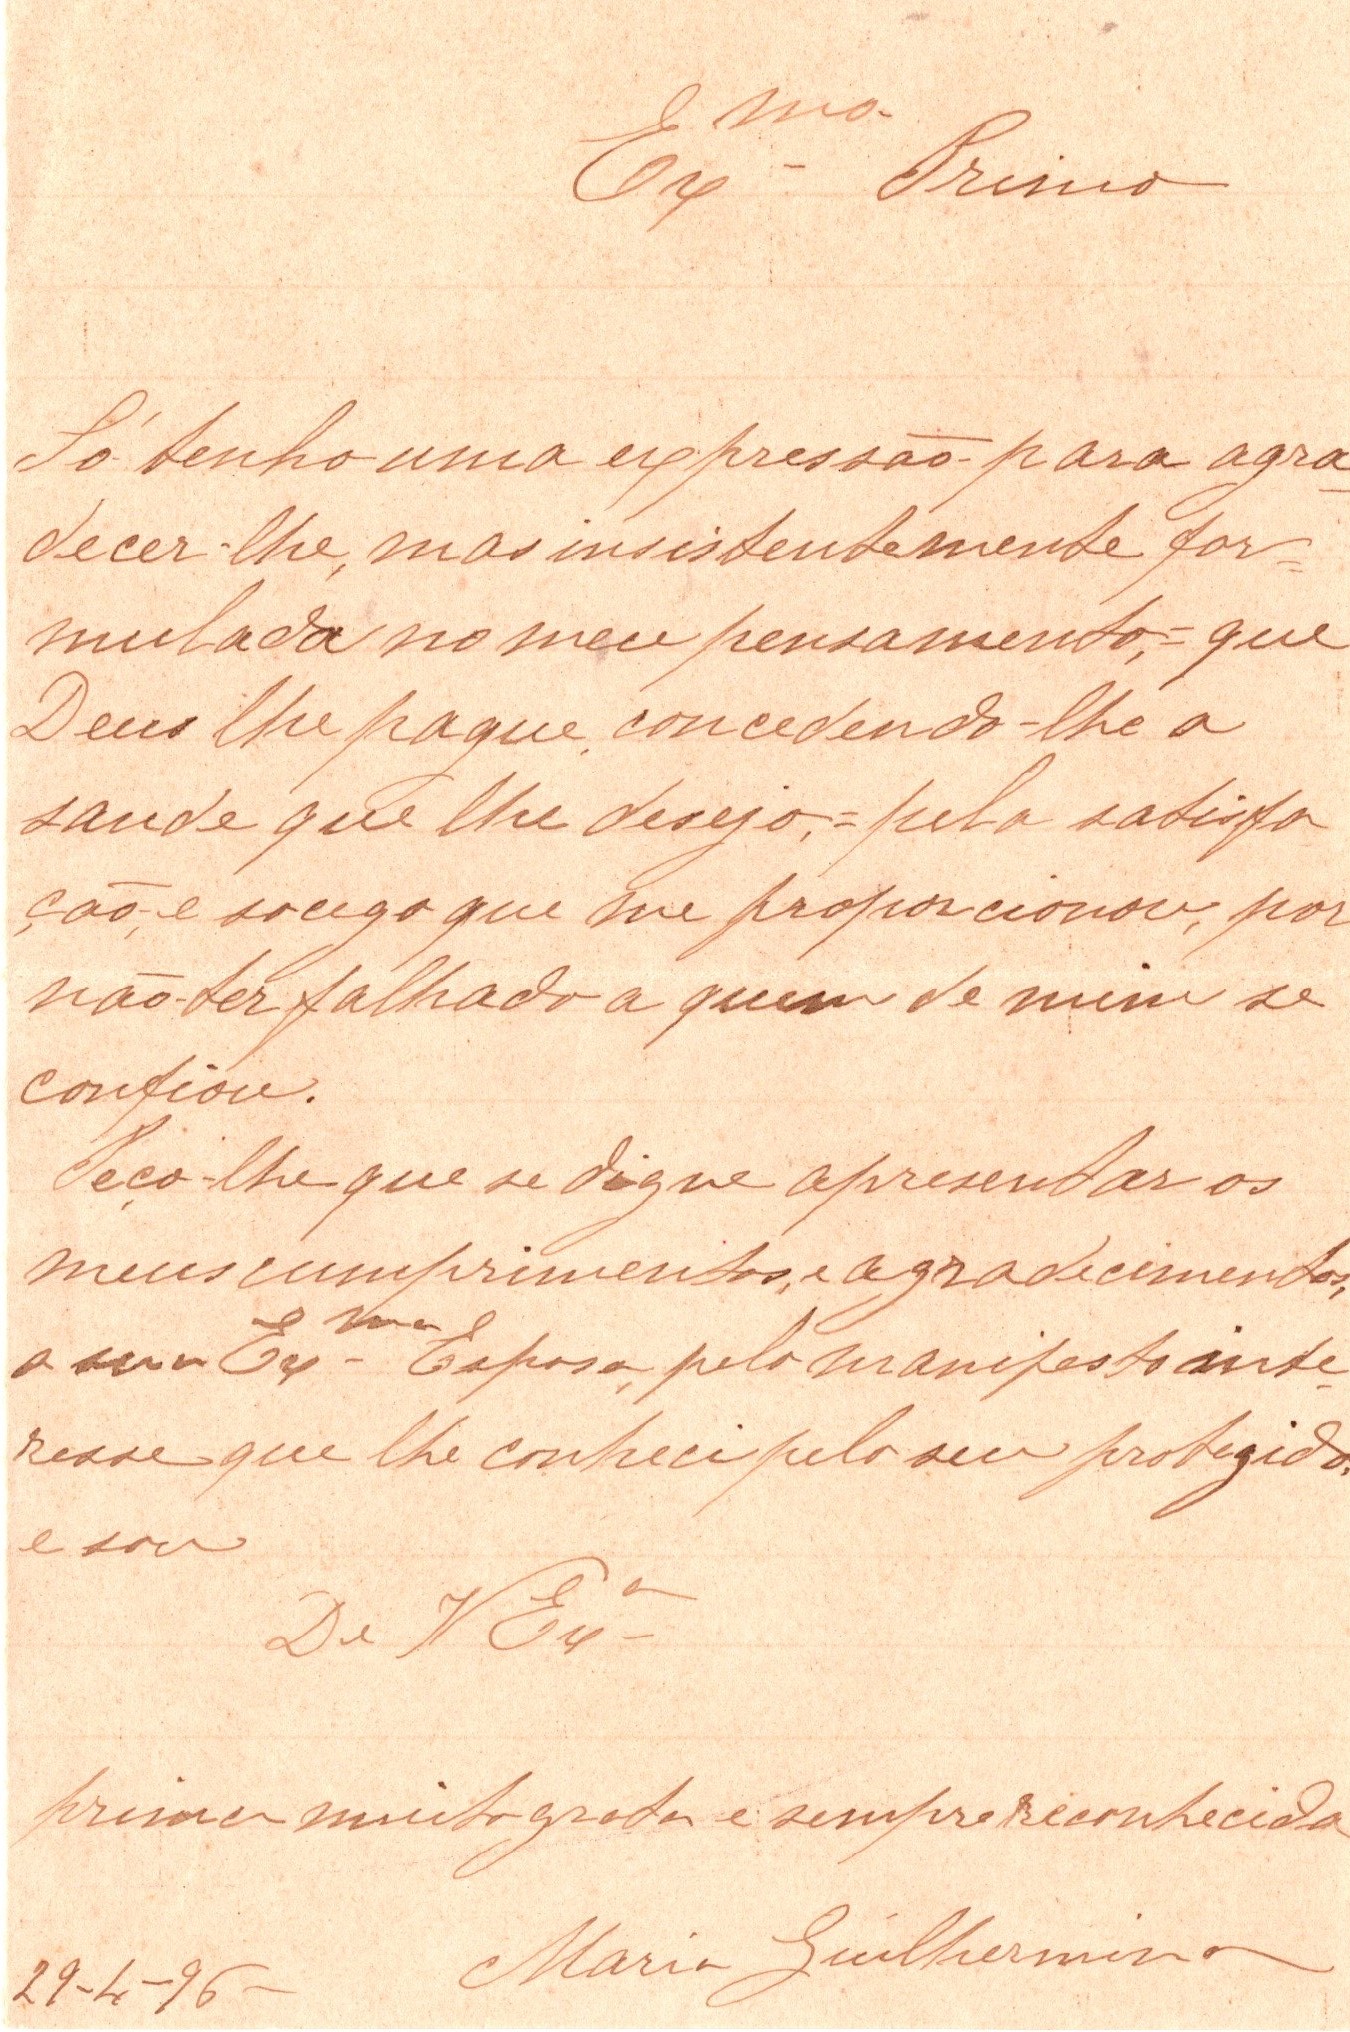 Ex^mo. Primo
Só tenho uma expressão para agra-
decer-lhe, mas insistentemente for=
mulada no meu pensamento,= que
Deus lhe pague, concedendo-lhe a
saude que lhe desejo,= pela satisfa
ção, e socego que me proporcionou, por
não ter falhado a quem de mim se
confiou.
Peço-lhe que se digne apresentar os
meus cumprimentos, e agradecimentos,
a sua Ex^ma Esposa, pelo manifesto inte-
resse que lhe conheci pelo seu protegido,
e sou
De V Ex^a
prima muito grata e sempre reconhecida
Maria Guilhermina
29-4-96-